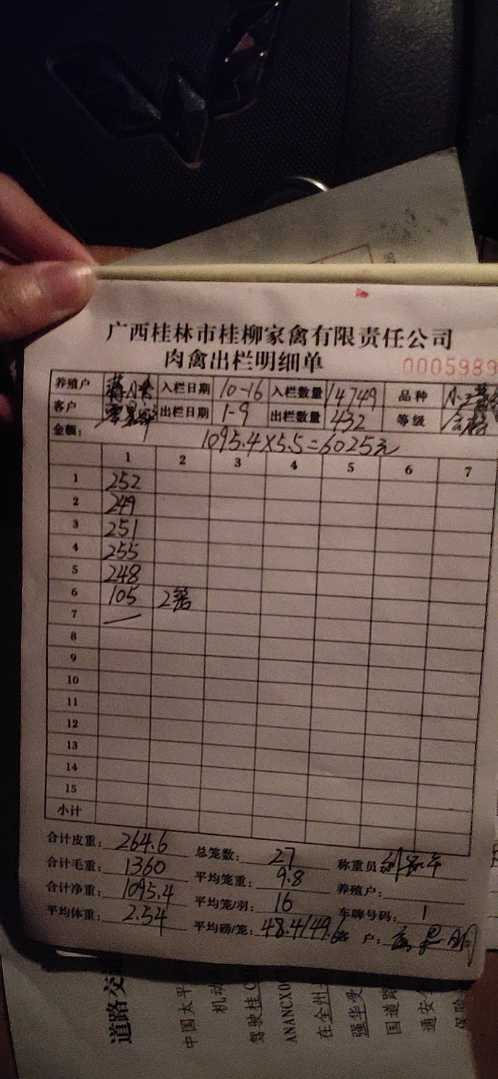 广西桂林市桂柳家禽有限责任公司
肉禽出栏明细单
0005989
养殖户 入栏日期 10-16 入栏数量 14749 品种
客户 出栏日期 1-9 出栏数量 432 等级 合格
金额: 1095.4×5.5=6025元
1 2 3 4 5 6 7
1 252
2 249
3 251
4 255
5 248
6 105 2笼
7 —
8
9
10
11
12
13
14
15
小计
合计皮重: 264.6 总笼数: 27 称重员
合计毛重: 1360 平均笼重: 9.8 养殖户:
合计净重: 1095.4 平均笼/羽: 16 车牌号码: 1
平均体重: 2.54 平均磅/笼: 48.4/49.6 户:
道路交
中国太平
机动
驾驶桂C
ANANCX0
在全州
强华受
国道路
通安全
保险